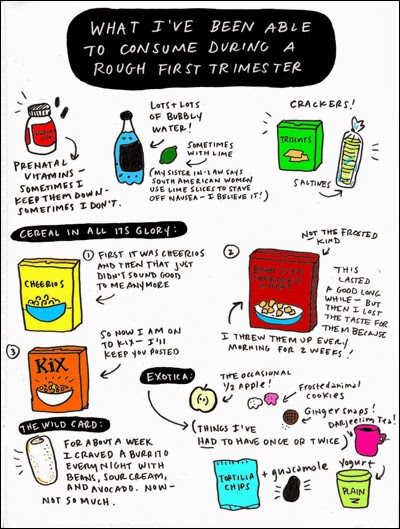 WHAT I'VE BEEN ABLE
TO CONSUME DURING A
ROUGH FIRST TRIMESTER
PRENATAL
VITAMINS—
SOMETIMES I
KEEP THEM DOWN-
SOMETIMES I DON'T.
LOTS + LOTS
OF BUBBLY
WATER!
SOMETIMES
WITH LIME
(MY SISTER IN-LAW SAYS
SOUTH AMERICAN WOMEN
USE LIME SLICES TO STAVE
OFF NAUSEA— I BELIEVE IT!)
CRACKERS!
TRISCUITS
SALTINES
CEREAL IN ALL ITS GLORY:
① FIRST IT WAS CHEERIOS
AND THEN THAT JUST
DIDN'T SOUND GOOD
TO ME ANYMORE
CHEERIOS
②
NOT THE FROSTED
KIND
THIS
LASTED
A GOOD LONG
WHILE— BUT
THEN I LOST
THE TASTE FOR
THEM BECAUSE
I THREW THEM UP EVERY
MORNING FOR 2 WEEKS!
③
KiX
SO NOW I AM ON
TO KIX— I'LL
KEEP YOU POSTED
EXOTICA:
THE OCCASIONAL
1/2 APPLE!
Frosted animal
cookies
Ginger snaps!
Darjeeling Tea!
(THINGS I'VE
HAD TO HAVE ONCE OR TWICE)
TORTILLA
CHIPS
+ guacamole
Yogurt
PLAIN
THE WILD CARD:
FOR ABOUT A WEEK
I CRAVED A BURRITO
EVERY NIGHT WITH
BEANS, SOUR CREAM,
AND AVOCADO. NOW—
NOT SO MUCH.